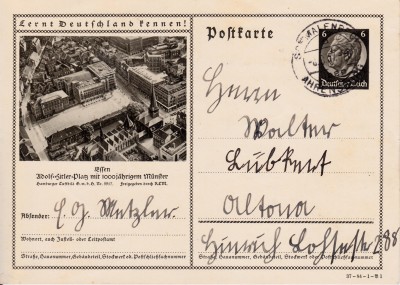 Lernt Deutschland kennen!
Essen
Adolf-Hitler-Platz mit 1000jährigem Münster
Hamburger Luftbild G.m.b.H. Nr.
Freigegeben durch RLM.
Absender: E. G. Metzler
Wohnort, auch Zustell- oder Leitpostamt
Straße, Hausnummer, Gebäudeteil, Stockwerk od. Postschließfachnummer
Postkarte
6 6
Deutsches Reich
Herrn
Walter
Lübkert
Altona
Hinrich Lohsestr 288
Straße, Hausnummer, Gebäudeteil, Stockwerk oder Postschließfachnummer